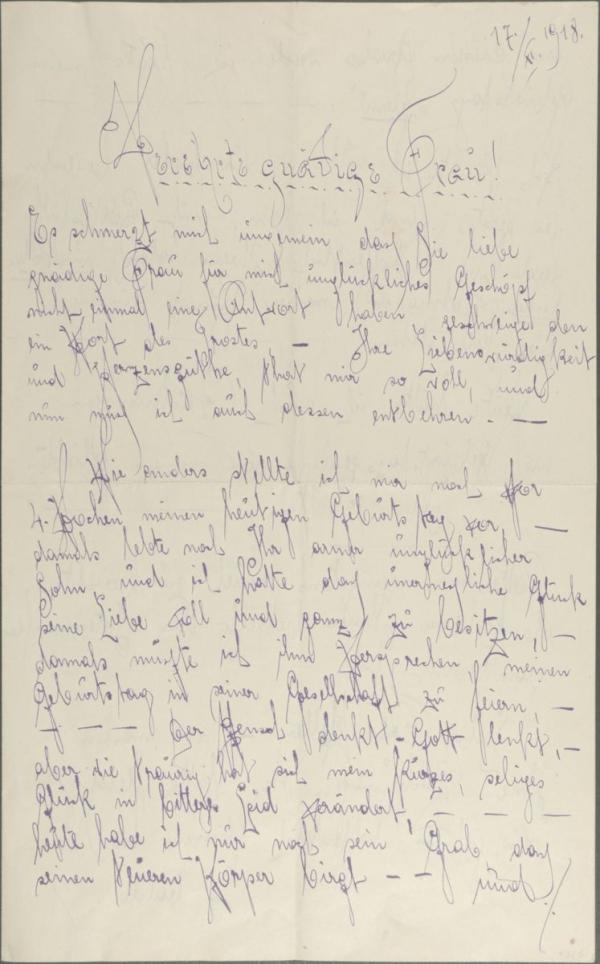 17./XI. 1918.
Verehrte gnädige Frau!
Es schmerzt mich ungemein das Sie liebe
gnädige Frau für mich unglückliches Geschöpf
nicht einmal eine Antwort haben geschweige den
ein Wort des Trostes, — Ihre Liebenswürdigkeit
und Herzensgüthe, that mir so woll, und
nun muß ich auch dessen entbehren. —
Wie anders stellte ich mir noch vor
4. Wochen meinen heutigen Geburtstag vor, —
damals lebte noch Ihr armer unglücklicher
Sohn und ich hatte das unermeßliche Glück
seine Liebe voll und ganz zu besitzen, —
damals mußte ich ihm versprechen, meinen
Geburtstag in seiner Gesellschaft zu feiern, —
— — — Der Mensch denkt - Gott lenkt, —
aber wie traurig hat sich mein kurzes, seliges
Glück in bitteres Leid verändert, — — — —
heute habe ich nur noch sein Grab das
seinen teueren Körper birgt — — und ./.